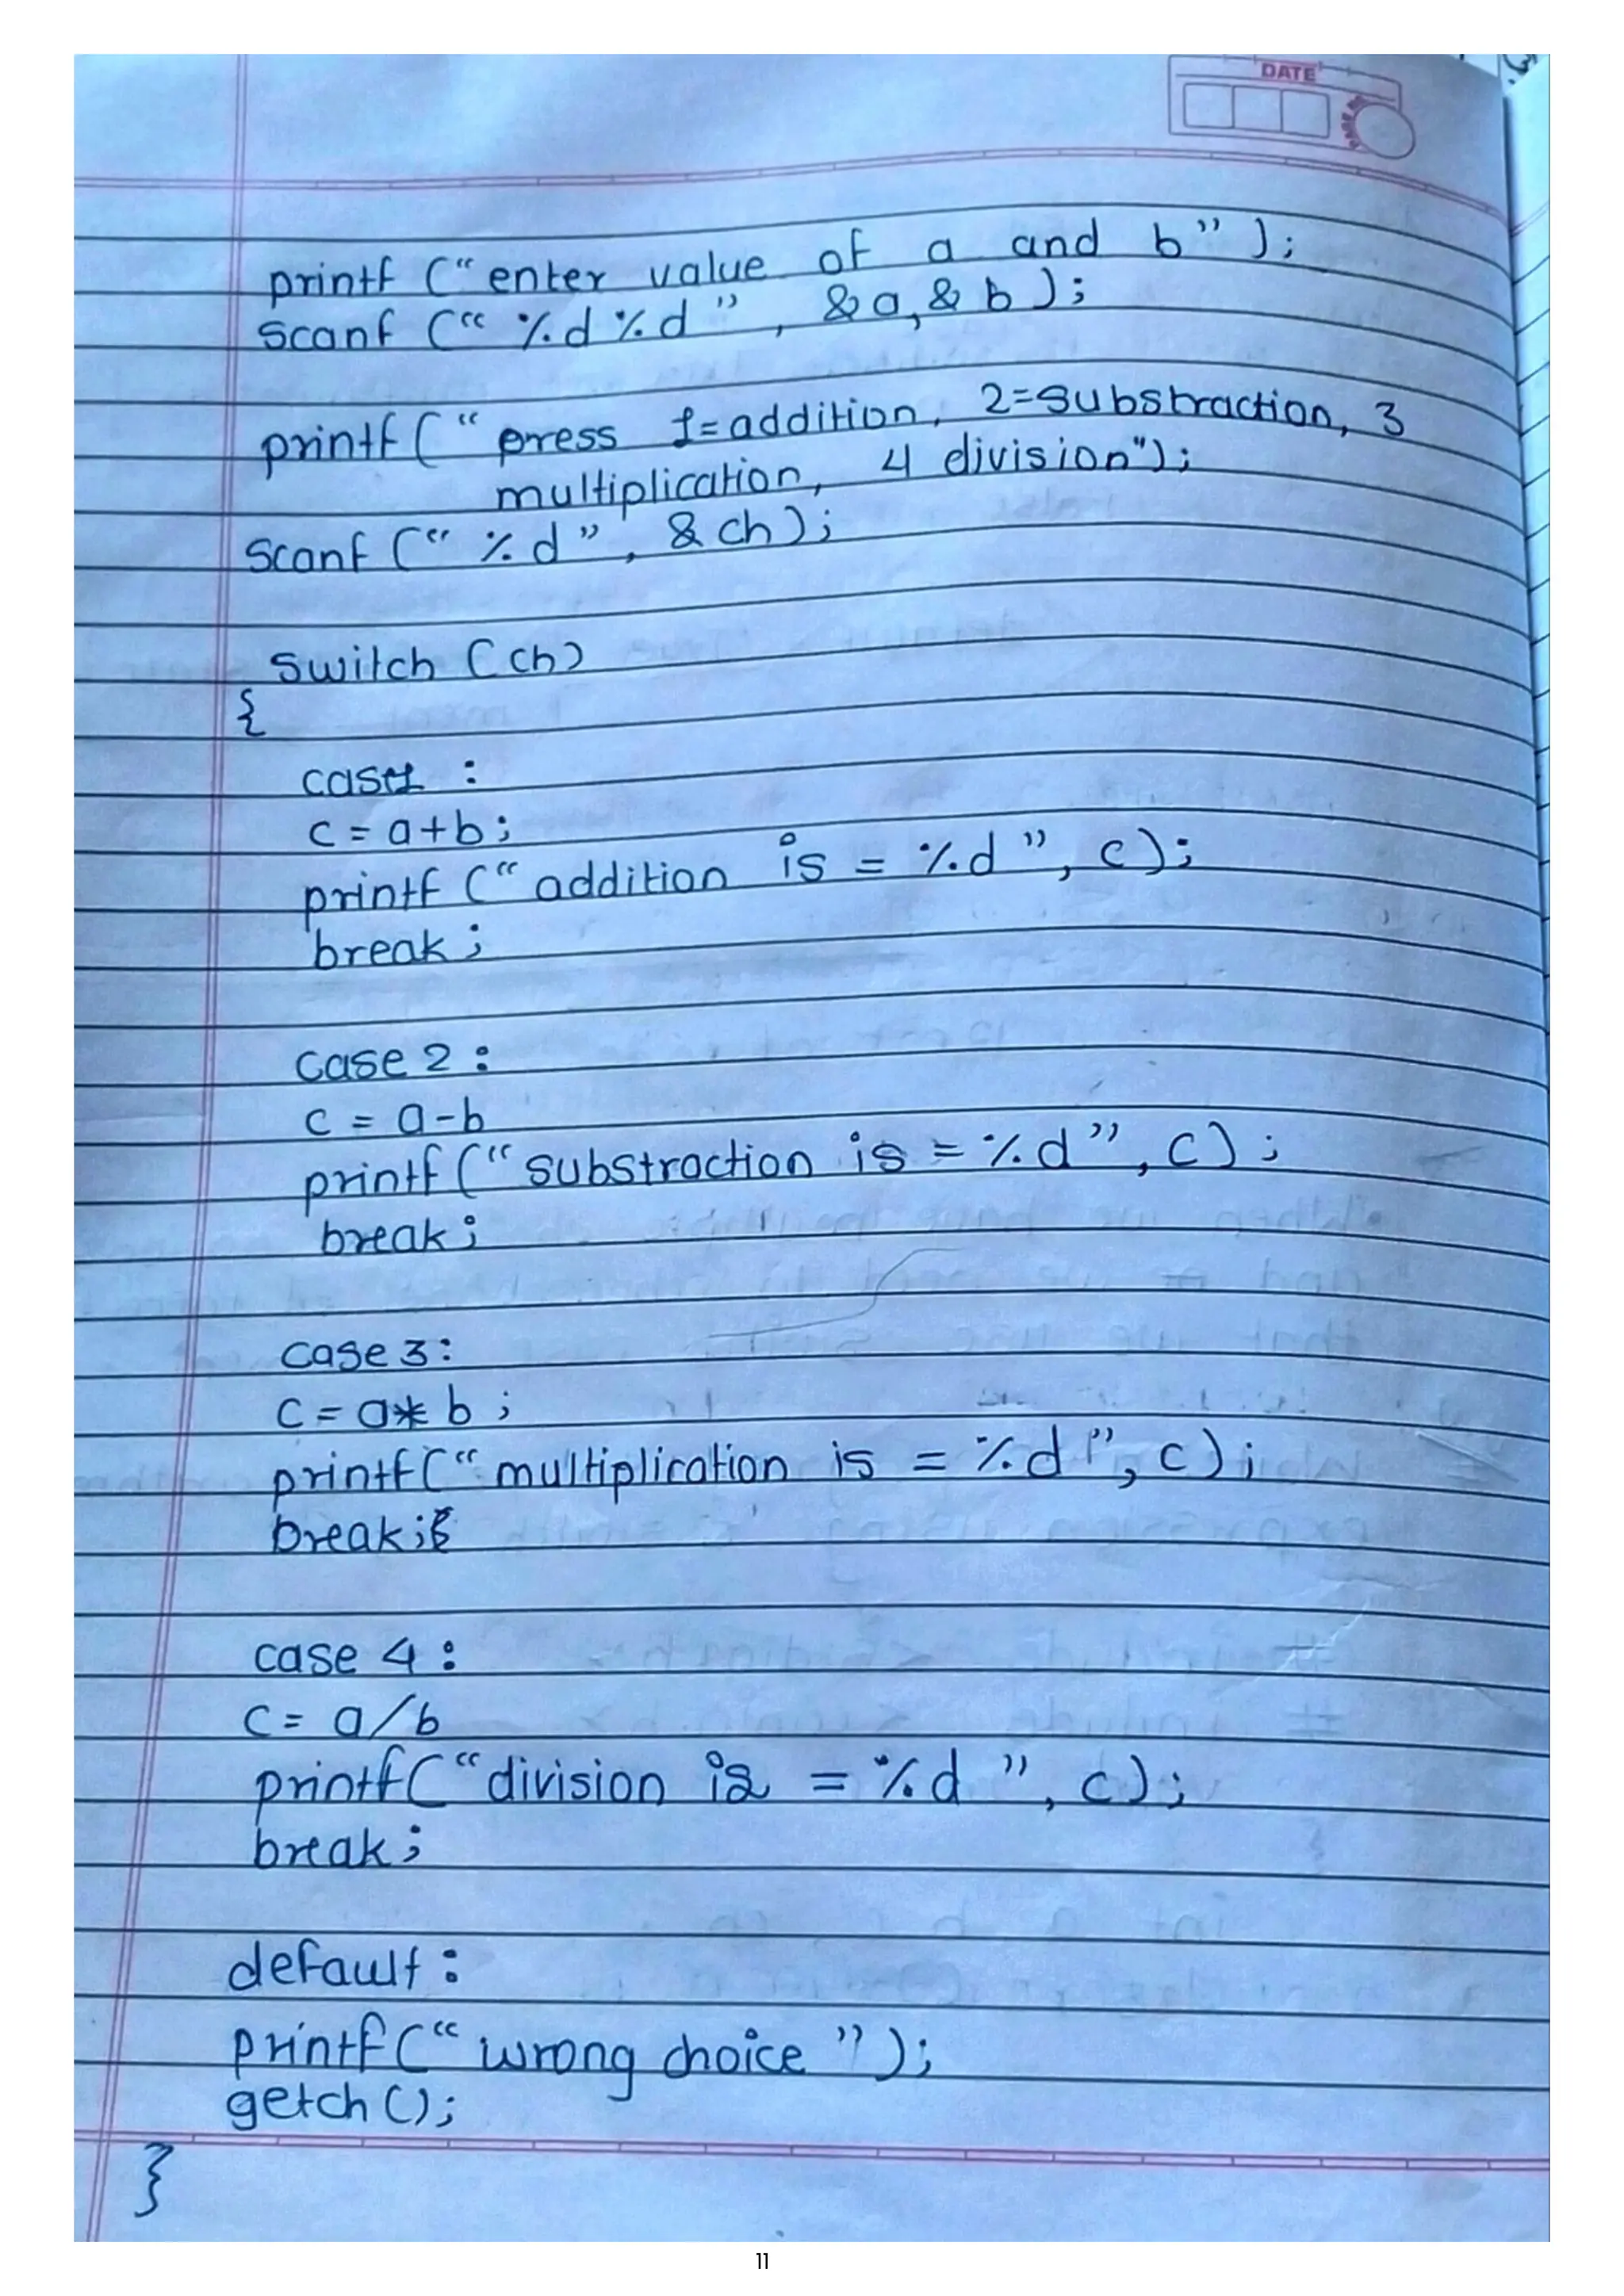 DATE
printf (“enter value of a and b”);
scanf (“ %d %d ” , &a, & b );
printf ( “ press 1=addition, 2=substraction, 3
multiplication, 4 division");
scanf (“ %d ” , & ch );
switch (ch)
{
case1 :
c = a+b;
printf (“ addition is = %d ”, c);
break;
case 2 :
c = a-b
printf (“ substraction is = %d ”, c) ;
break;
case 3:
c = a* b ;
printf (“ multiplication is = %d ”, c);
break;
case 4 :
c = a/b
printf(“division is = %d ” , c);
break;
default :
printf (“ wrong choice ”);
getch ();
}
11